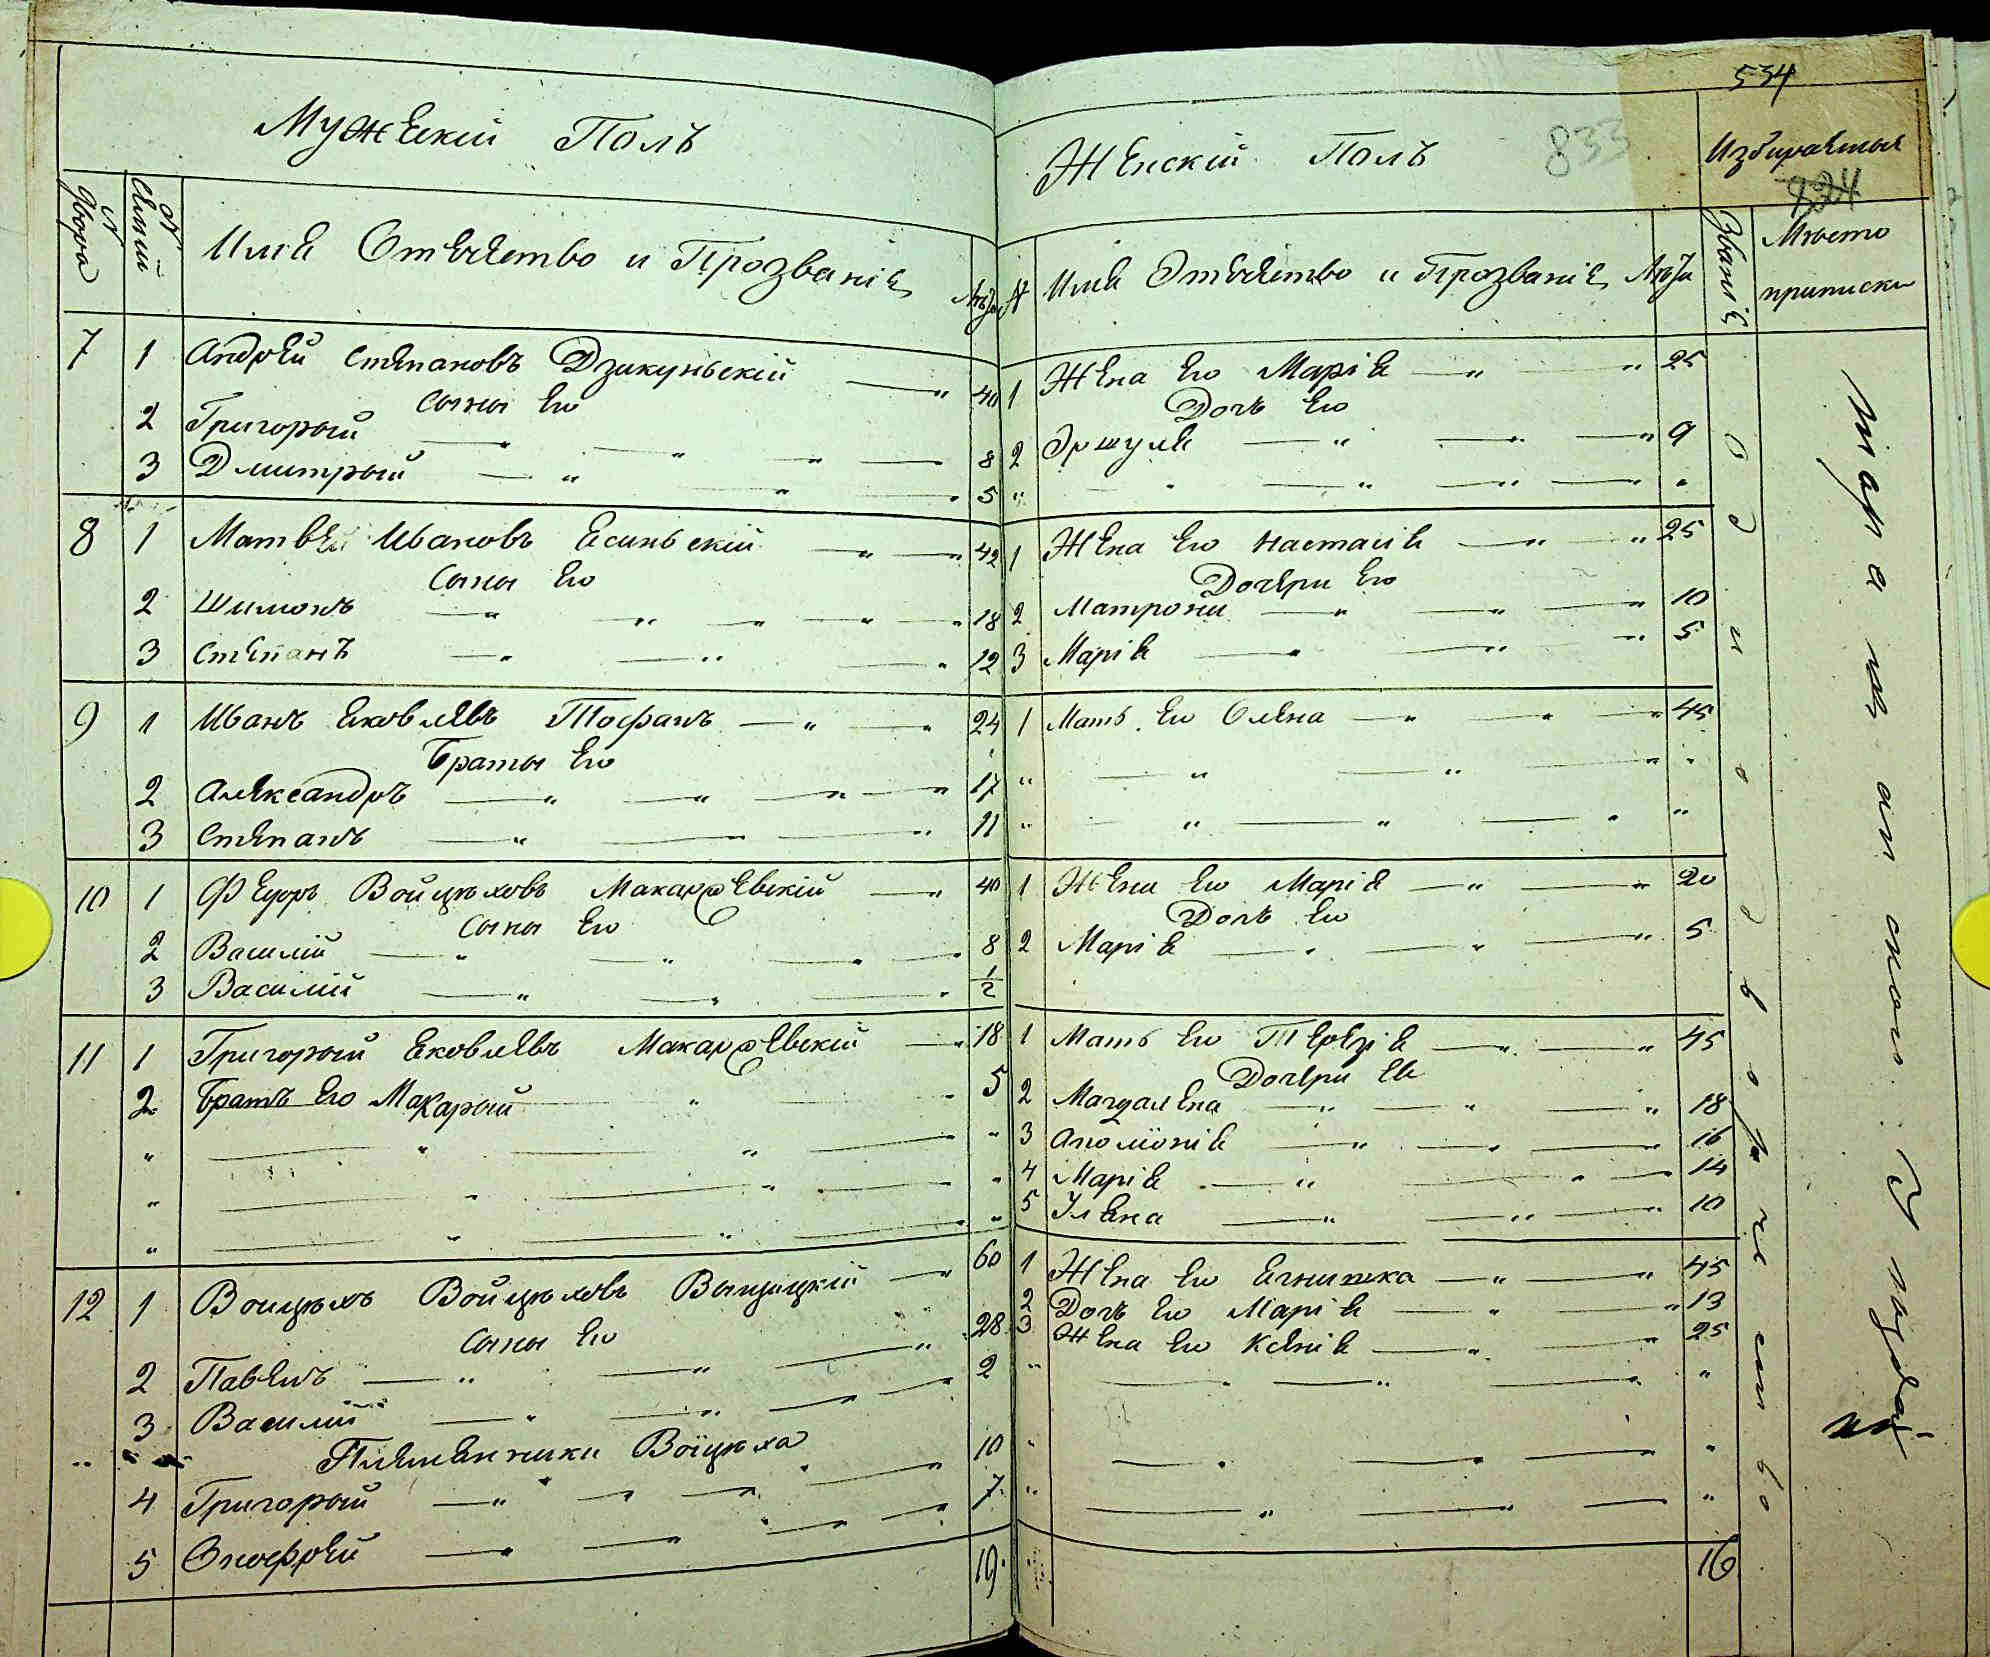 Мужескій Полъ
№ Двора
№ Семій
Имя Отечество и Прозваніе
Лѣта
7 1 Андрей Степановъ Дзикуньскій — " 40
Сыны Его
2 Григорый — " — " — " — 8
3 Дмитрый — " — " — " 5
8 1 Матвей Ивановъ Есиньскій — " — " 42
Сыны Его
2 Шимонъ — " — " — " — " 18
3 Степанъ — " — " — " 12
9 1 Иванъ Яковлевъ Тофанъ — " — " 24
Браты Его
2 Александръ — " — " — " — " 17
3 Степанъ — " — " 11
10 1 Федоръ Войцѣховъ Макаревскій — " 40
Сыны Его
2 Василій — " — " — " — " 8
3 Василій — " — " — " 1/2
11 1 Григорый Яковлевъ Макаревскій — " 18
2 Братъ Его Макарый — " — " 5
" — " — " — " "
" — " — " — " "
" — " — " — " "
12 1 Войцѣхъ Войцѣховъ — " 60
Сыны Его
2 Павелъ — " — " — " 28
3 Василій — " — " — " 2
Племенники Войцѣха
4 Григорый — " — " — " 10
5 Онофрей — " — " — " 7
19
534
Женскій Полъ
833
Избираемыя
№ Имя Отечество и Прозваніе Лѣта
Званіе
Место приписки
1 Жена Его Марія — " — " 25
Дочь Его
2 Оршуля — " — " — " 9
" — " — " — " "
1 Жена Его Настасія — " — " 25
Дочери Его
2 Матрона — " — " — " 10
3 Марія — " — " — " 5
1 Мать Его Олена — " — " — " 45
" — " — " — " "
" — " — " — " "
1 Жена Его Марія — " — " 20
Дочь Его
2 Марія — " — " — " 5
1 Мать Его Терезія — " — " 45
Дочери Ея
2 Магдалена — " — " — " 18
3 Аполіонія — " — " — " 16
4 Марія — " — " — 14
5 Улена — " — " — " 10
1 Жена Его Агнишка — " — " 45
2 Дочь Его Марія — " — " 13
3 Жена Его Ксенія — " — " 25
" — " — " — " "
" — " — " — "
" — " — " — "
16
Однодворчество